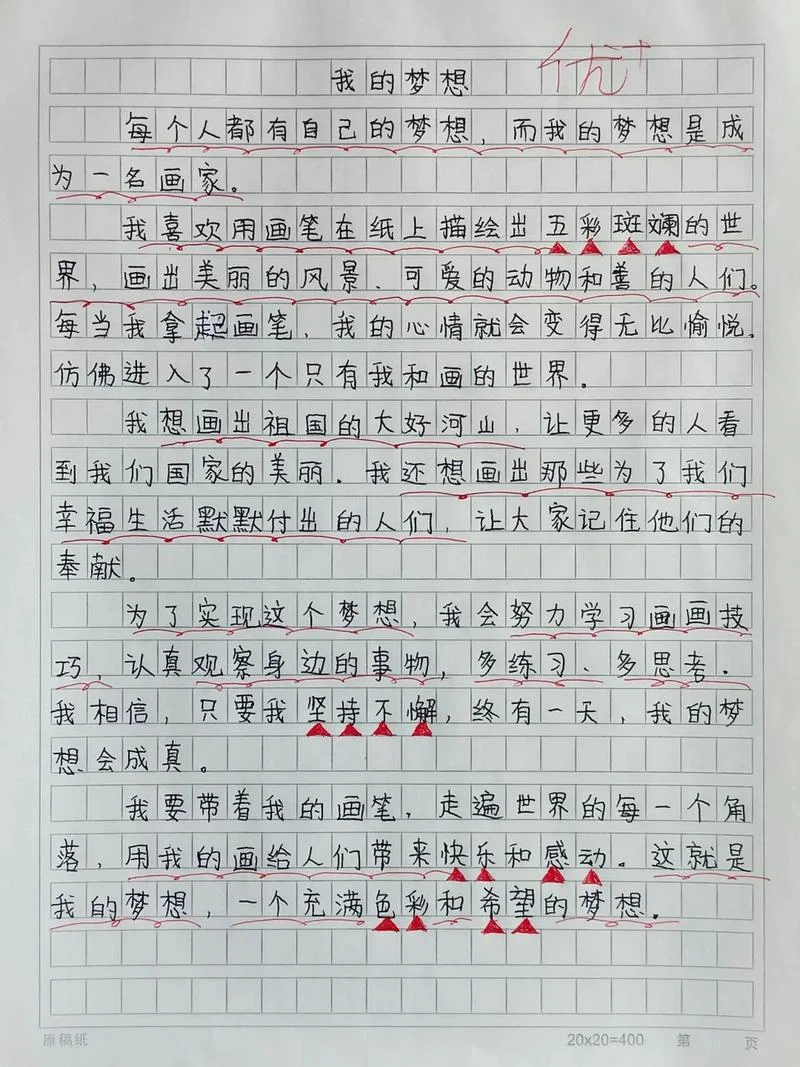 优+
我的梦想
每个人都有自己的梦想，而我的梦想是成
为一名画家。
我喜欢用画笔在纸上描绘出五彩斑斓的世
界，画出美丽的风景、可爱的动物和善的人们。
每当我拿起画笔，我的心情就会变得无比愉悦。
仿佛进入了一个只有我和画的世界。
我想画出祖国的大好河山，让更多的人看
到我们国家的美丽。我还想画出那些为了我们
幸福生活默默付出的人们，让大家记住他们的
奉献。
为了实现这个梦想，我会努力学习画画技
巧，认真观察身边的事物，多练习、多思考。
我相信，只要我坚持不懈，终有一天，我的梦
想会成真。
我要带着我的画笔，走遍世界的每一个角
落，用我的画给人们带来快乐和感动。这就是
我的梦想，一个充满色彩和希望的梦想。
原稿纸 20x20=400 第 页